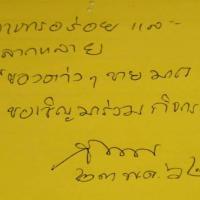 อาหารอร่อย และ
หลากหลาย
ของต่างๆ ขาย
ขอเชิญมาร่วม กิจกร
๒๓ พ.ค. ๖๒